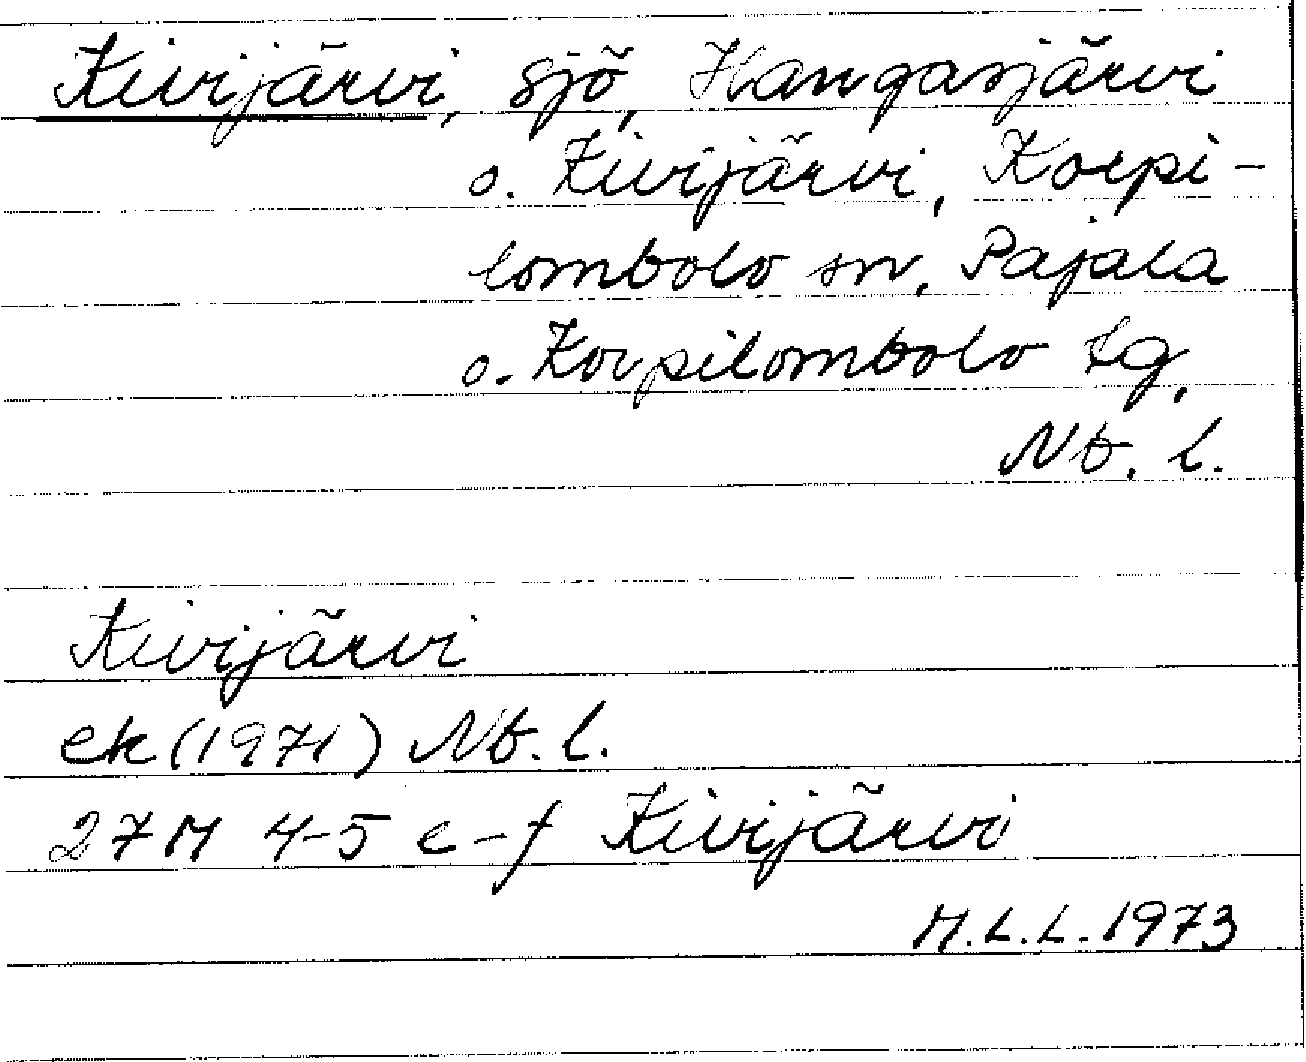 Kivijärvi, sjö, Hangasjärvi
o. Kivijärvi, Korpi-
lombolo sn, Pajala
o. Korpilombolo tg,
Nb. l.
Kivijärvi
ek (1971) Nb. l.
27M 4-5 e-f Kivijärvi
M.L.L. 1973